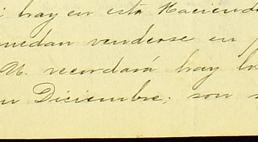 hay en esta Haciend
uedan venderse en
U. recordará hay lo
n Diciembre; son s